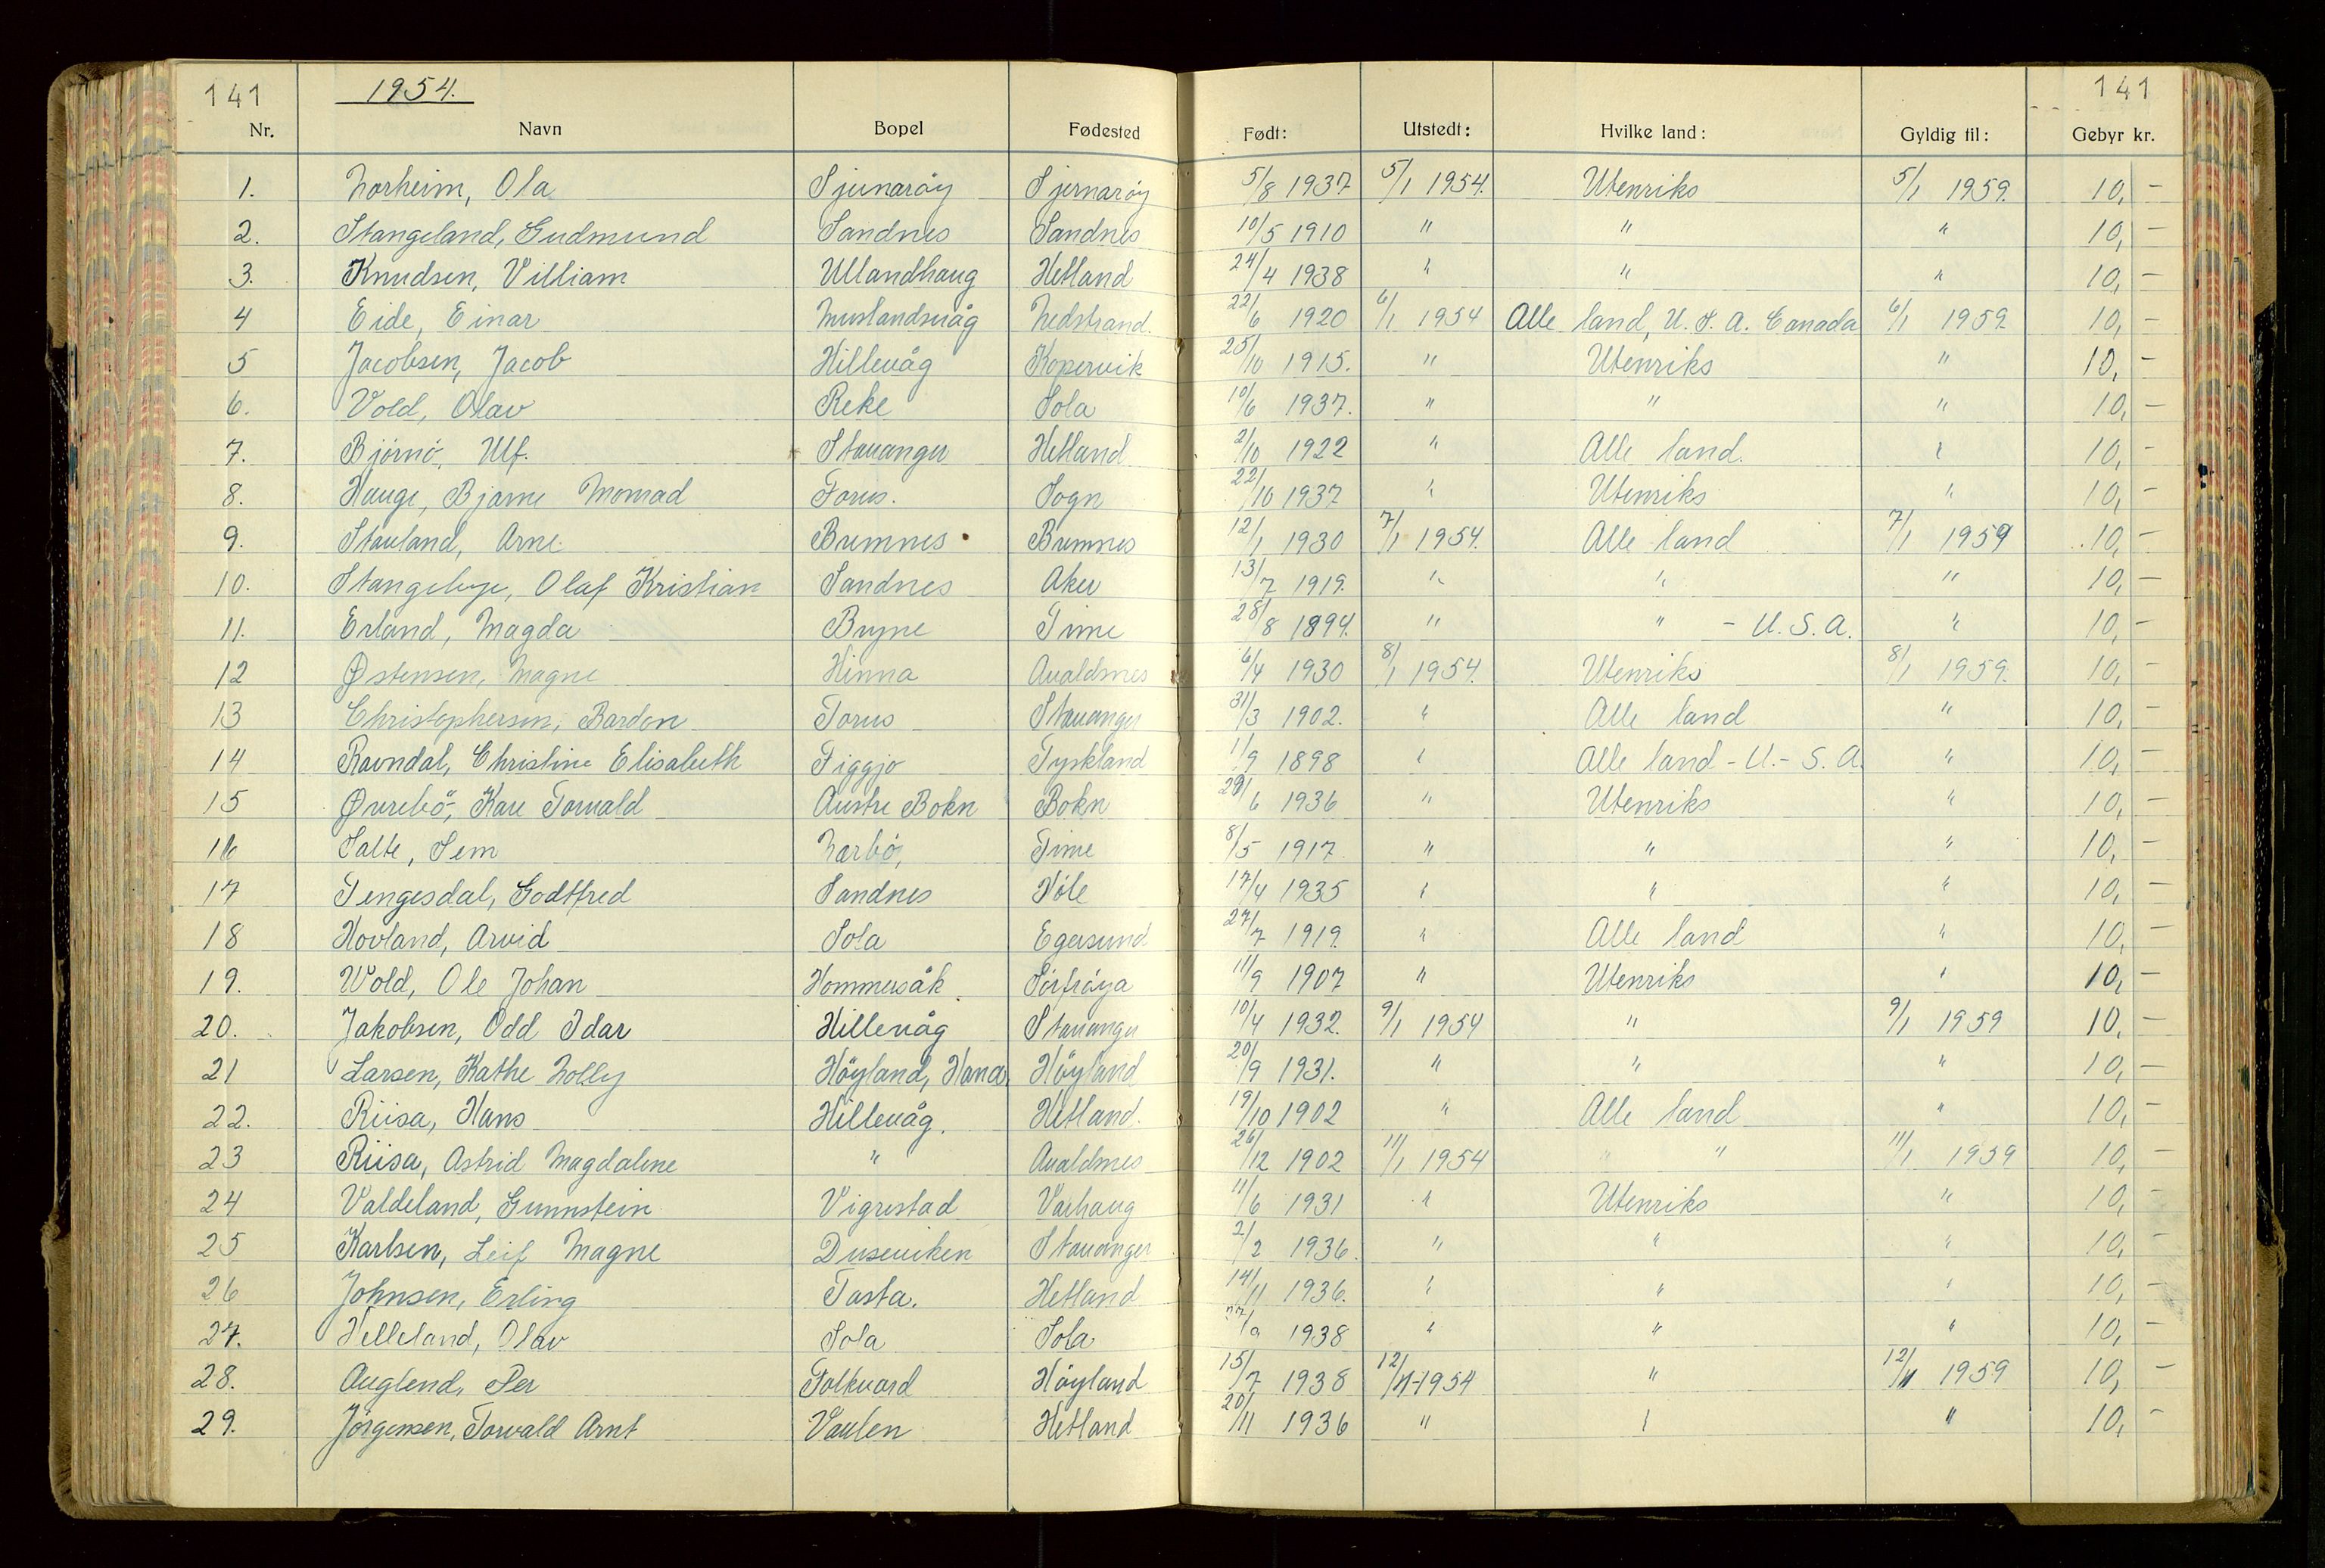 141 1954. 141
Nr. Navn Bopel Fødested Født: Utstedt: Hvilke land: Gyldig til: Gebyr kr.
1. Norheim, Ola Sjernarøy Sjernarøy 5/8 1937 5/1 1954. Utenriks 5/1 1959. 10,-
2. Stangeland, Gudmund Sandnes Sandnes 10/5 1910 " " " 10,-
3. Knudsen, Villiam Ullandhaug Hetland 24/4 1938 " " " 10,-
4 Eide, Einar Nedstrand. 22/6 1920 6/1 1954 Alle land, U.S.A. Canada 6/1 1959. 10,-
5 Jacobsen, Jacob Hillevåg Kopervik 25/10 1915. " Utenriks " 10,-
6. Vold, Olav Reke Sola 10/6 1937. " " " 10,-
7. Bjørnø, Ulf. Stavanger Hetland 2/10 1922 " Alle land. " 10,-
8. Hauge, Bjarne Monrad Forus. Sogn 22/10 1937 " Utenriks " 10,-
9. Stauland, Arne Bremnes Bremnes 12/1 1930 7/1 1954. Alle land 7/1 1959 10,-
10. Stangebye, Olaf Kristian Sandnes Aker 13/7 1919. " " " 10,-
11. Erland, Magda Bryne Time 28/8 1894. " " - U.S.A. " 10,-
12 Østensen, Magne Hinna Avaldsnes 6/4 1930 8/1 1954. Utenriks 8/1 1959. 10,-
13 Christophersen, Bardon Forus Stavanger 31/3 1902. " Alle land " 10,-
14 Ravndal, Christine Elisabeth Figgjo Tyskland 1/9 1898 " Alle land - U.- S.A. " 10,-
15 Øvrebö, Kåre Torvald Austre Bokn Bokn 29/6 1936 " Utenriks " 10,-
16 Salte, Sem Nærbø, Time 8/5 1917 " " " 10,-
17 Tengesdal, Godtfred Sandnes Høle 17/4 1935 " " " 10,-
18 Hovland, Arvid Sola Egersund 27/7 1919. " Alle land " 10,-
19. Wold, Ole Johan Hommersåk Sörfröya 11/9 1907 " Utenriks " 10,-
20. Jakobsen, Odd Idar Hillevåg Stavanger 10/4 1932. 9/1 1954 " 9/1 1959 10,-
21 Larsen, Kathe Nolly Høyland, Hana Høyland 20/9 1931. " " " 10,-
22. Riisa, Hans Hillevåg. Hetland. 19/10 1902 " Alle land " 10,-
23 Riisa, Astrid Magdalene " Avaldsnes 26/12 1902 11/1 1954 " " 11/1 1959 10,-
24 Valdeland, Gunnstein Vigrestad Varhaug 11/6 1931 " Utenriks " 10,-
25 Karlsen, Leif Magne Duseviken Stavanger 2/2 1936. " " " 10,-
26 Johnsen, Erling Tasta. Hetland 14/11 1936. " " " 10,-
27. Helleland, Olav Sola Sola 1938 " " " 10,-
28. Auglend, Per Folkvord Høyland 15/7 1938 12/1-1954 " 12/1 1959 10,-
29. Jörgensen, Torvald Arnt Vaulen Hetland 20/11 1936 " " " 10,-